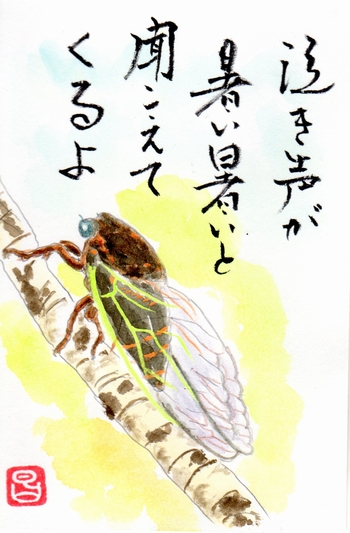 泣き声が
暑い暑いと
聞こえて
くるよ